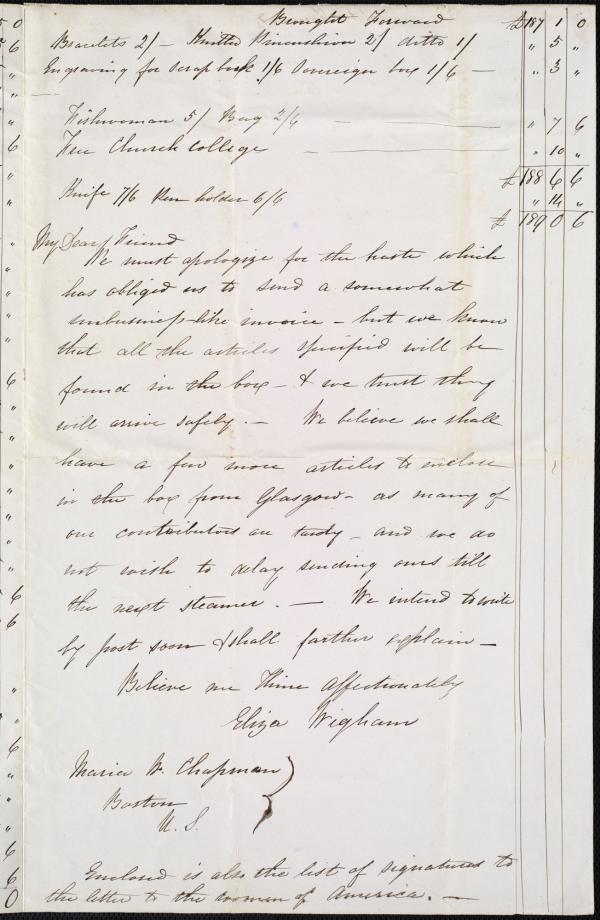 Brought Forward £187 1 0
Bracelets 2/ — Knitted Pincushion 2/ ditto 1/ " 5 "
Engraving for scrap book 1/6 Sovereign box 1/6 — " 3 "
Fishwoman 5/ Bag 2/6 — " 7 6
Free Church College — " 10 "
£188 6 6
Knife 7/6 Pen holder 6/6 " 14 "
£ 189 0 6
My Dear Friend
We must apologize for the haste which
has obliged us to send a somewhat
unbusiness-like invoice – but we know
that all the articles specified will be
found in the box – & we trust they
will arrive safely. — We believe we shall
have a few more articles to enclose
in the box from Glasgow – as many of
our contributors are tardy – and we do
not wish to delay sending ours till
the next steamer. — We intend to write
by post soon & shall farther explain —
Believe me Thine affectionately
Eliza Wigham
Maria W. Chapman
Boston
U. S.
Enclosed is also the list of signatures to
the letter to the women of America. —